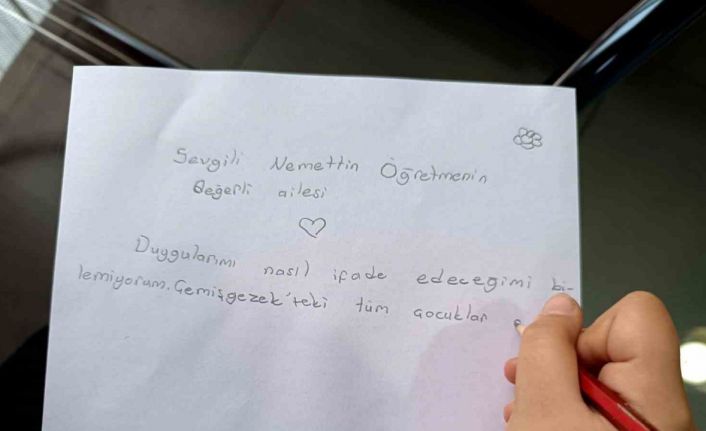 Sevgili Nemettin Öğretmenin
değerli ailesi
Duygularımı nasıl ifade edeceğimi bi-
lemiyorum. Çemişgezek'teki tüm çocuklar